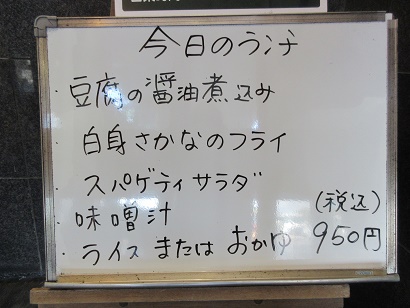 今日のランチ
・豆腐の醤油煮込み
白身さかなのフライ
・スパゲティサラダ
・味噌汁
(税込)
・ライス または おかゆ 950円